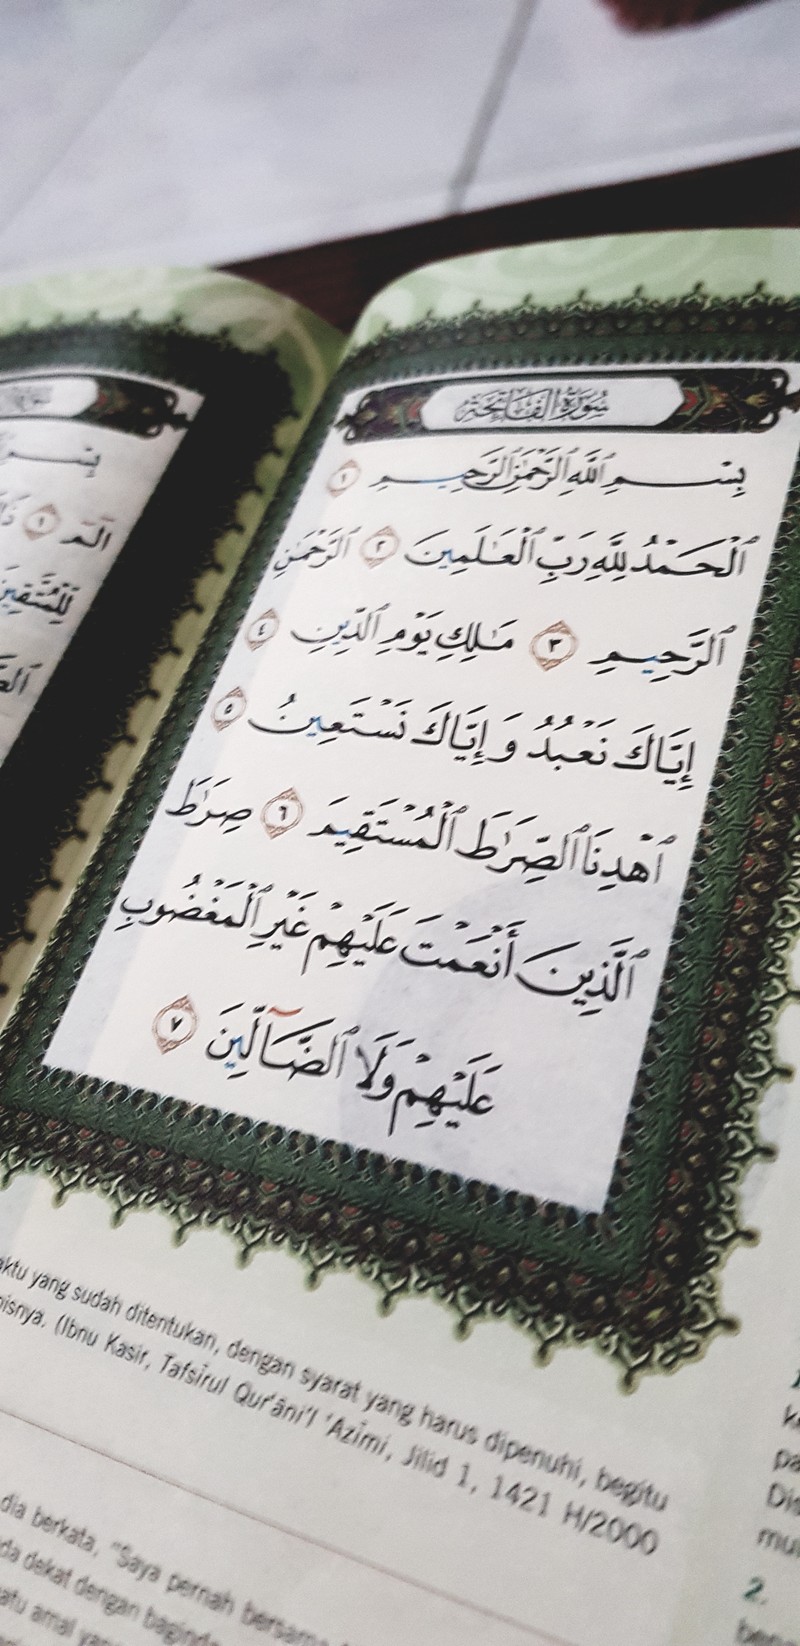 سُورَةُ الْفَاتِحَةِ
بِسْمِ اللَّهِ الرَّحْمَٰنِ الرَّحِيمِ ١
ٱلْحَمْدُ لِلَّهِ رَبِّ ٱلْعَـٰلَمِينَ ٢ ٱلرَّحْمَـٰنِ
ٱلرَّحِيمِ ٣ مَـٰلِكِ يَوْمِ ٱلدِّينِ ٤
إِيَّاكَ نَعْبُدُ وَإِيَّاكَ نَسْتَعِينُ ٥
ٱهْدِنَا ٱلصِّرَٰطَ ٱلْمُسْتَقِيمَ ٦ صِرَٰطَ
ٱلَّذِينَ أَنْعَمْتَ عَلَيْهِمْ غَيْرِ ٱلْمَغْضُوبِ
عَلَيْهِمْ وَلَا ٱلضَّآلِّينَ ٧
الٓمٓ ١
yang sudah ditentukan, dengan syarat yang harus dipenuhi, begitu
(Ibnu Kasir, Tafsīrul Qur'āni'l 'Azīmi, Jilid 1, 1421 H/2000
dia berkata, "Saya pernah bersama
dekat dengan baginda
amal
2.